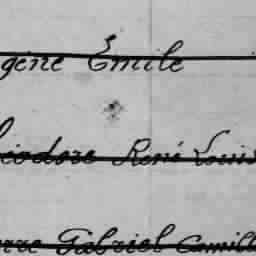 gène Émile
éodore René Louis
erre Gabriel Camill